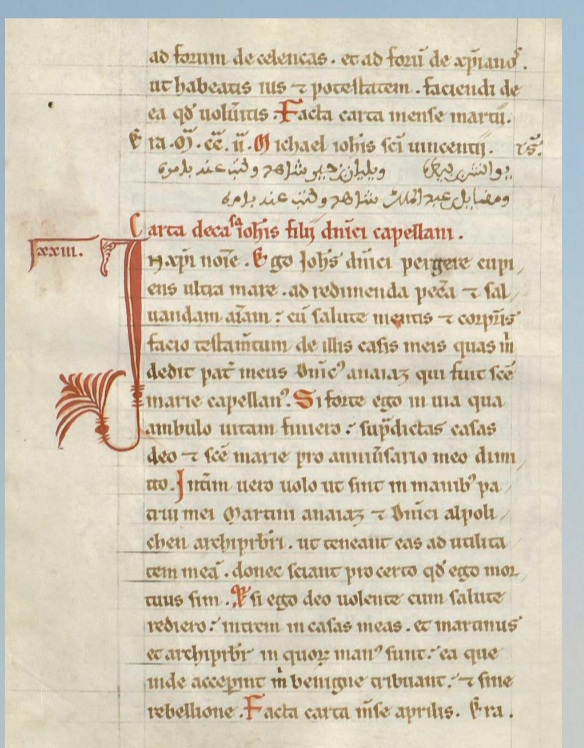 ad forum de celencas. et ad forū de xp̄ianoꝰ.
ut habeatis ius ⁊ potestatem. faciendi de
ea qd̄ uoluītis. Facta carta mense martii.
Era. M̄. c̄c̄. ii. Michael ioh̄is sc̄i uincentii.
Carta de casa ioh̄is filij dn̄ici capellani.
xxiii.
IN xp̄i noīe. Ego Ioh̄s dn̄ici pergere cupi
ens ultra mare. ad redimenda pec̄a ⁊ sal
uandam aīam: cū salute mentis ⁊ corpīs
facio testam̄tum de illis casis meis quas m̄
dedit pat̄ meus Dn̄icꝰ anaiaz qui fuit sc̄e
marie capellanꝰ. Si forte ego in uia qua
ambulo uitam finiero: sup̄dictas casas
deo ⁊ sc̄e marie pro anniu̅sario meo dimi
tto. Int̄im uero uolo ut sint in manibꝰ pa
trui mei Martini anaiaz ⁊ Dn̄ici alpoli
chen archipr̄bri. ut teneant eas ad utilita
tem meā. donec sciant pro certo qd̄ ego mor
tuus sim. Et si ego deo uolente cum salute
rediero: intrem in casas meas. et martinus
et archipr̄br in quoꝝ manꝰ sunt: ea que
inde accep̄int m̄ benigne tribuant: ⁊ sine
rebellione. Facta carta m̄se aprilis. Era.